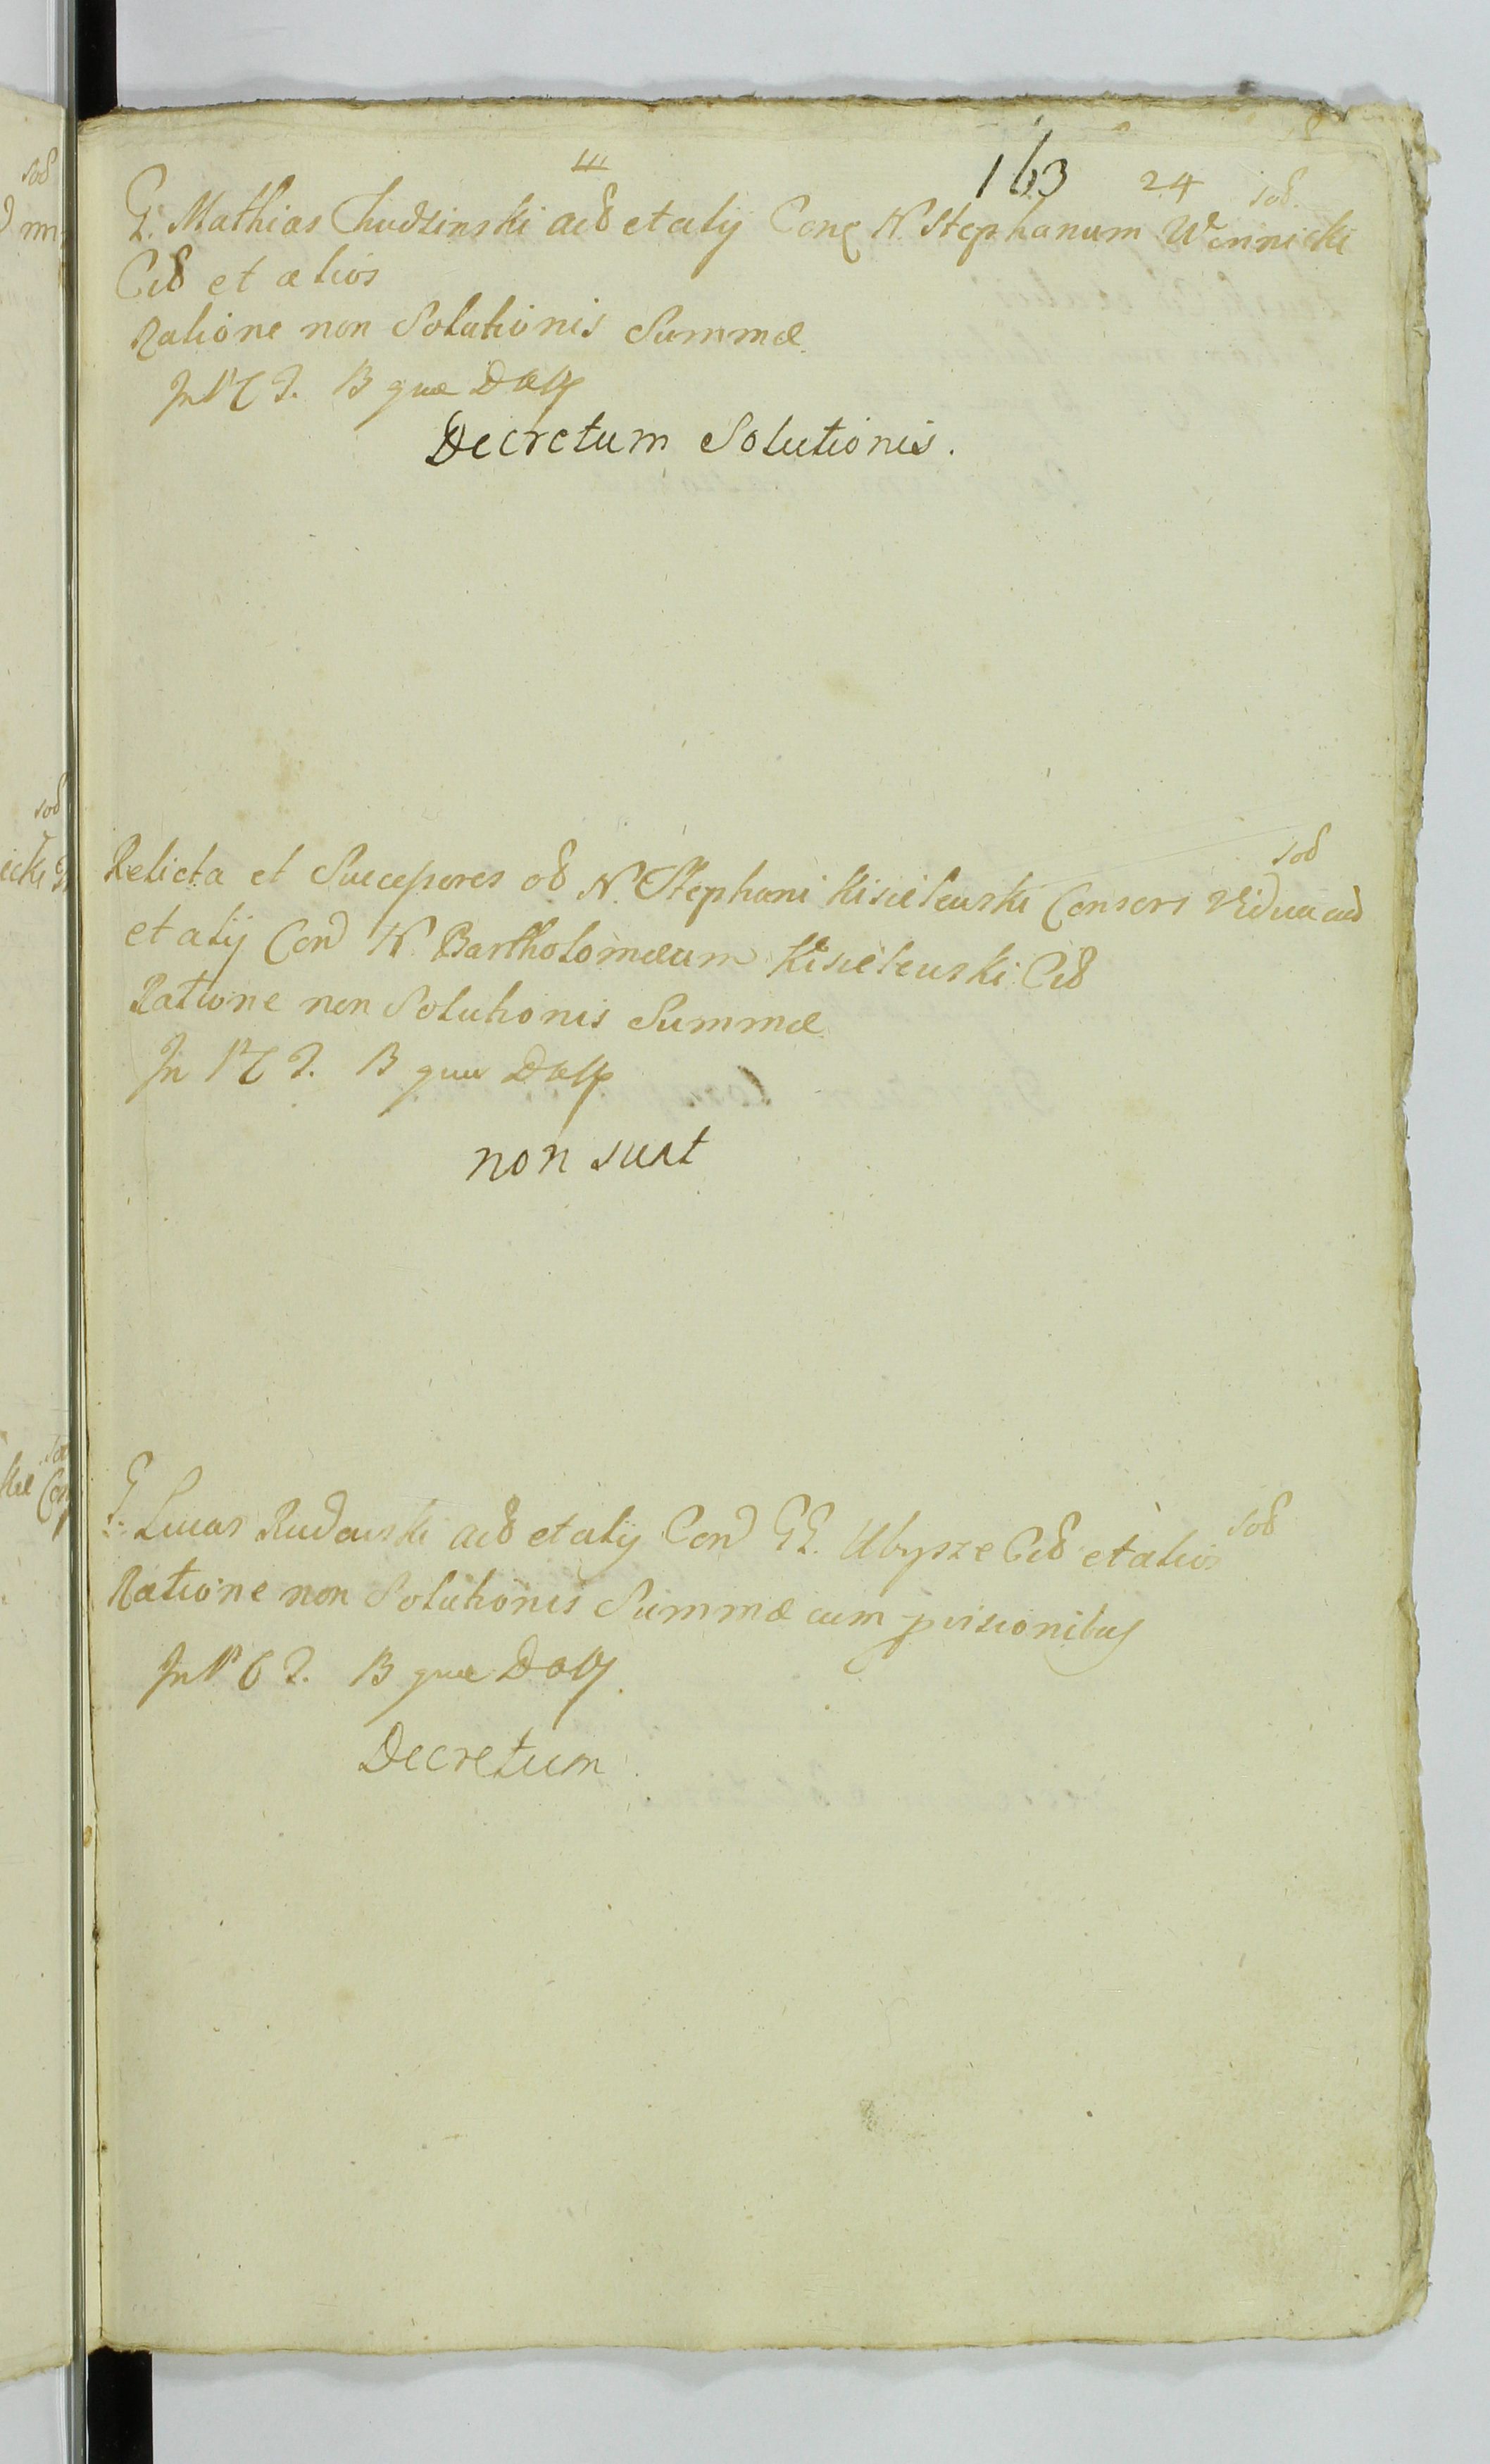 163 24
G. Mathias Chudzinski acto et alij Conq N. Stephanum Winnicki
Cito et alios
Ratione non Solutionis Summæ
In Pt T. B quæ
Decretum Solutionis.
Relicta et Successores ol N. Stephani Kisielewski Consors Vidua
et alij Con N. Bartholomæum Kisielewski Cito
Ratione non Solutionis Summæ
In Pt T. B quæ
non sunt
G. Lucas Rudawski acto et alij Con GG. Ubysze Cito et alios
Ratione non Solutionis Summæ cum pvisionibus
In Pt T. B quæ
Decretum